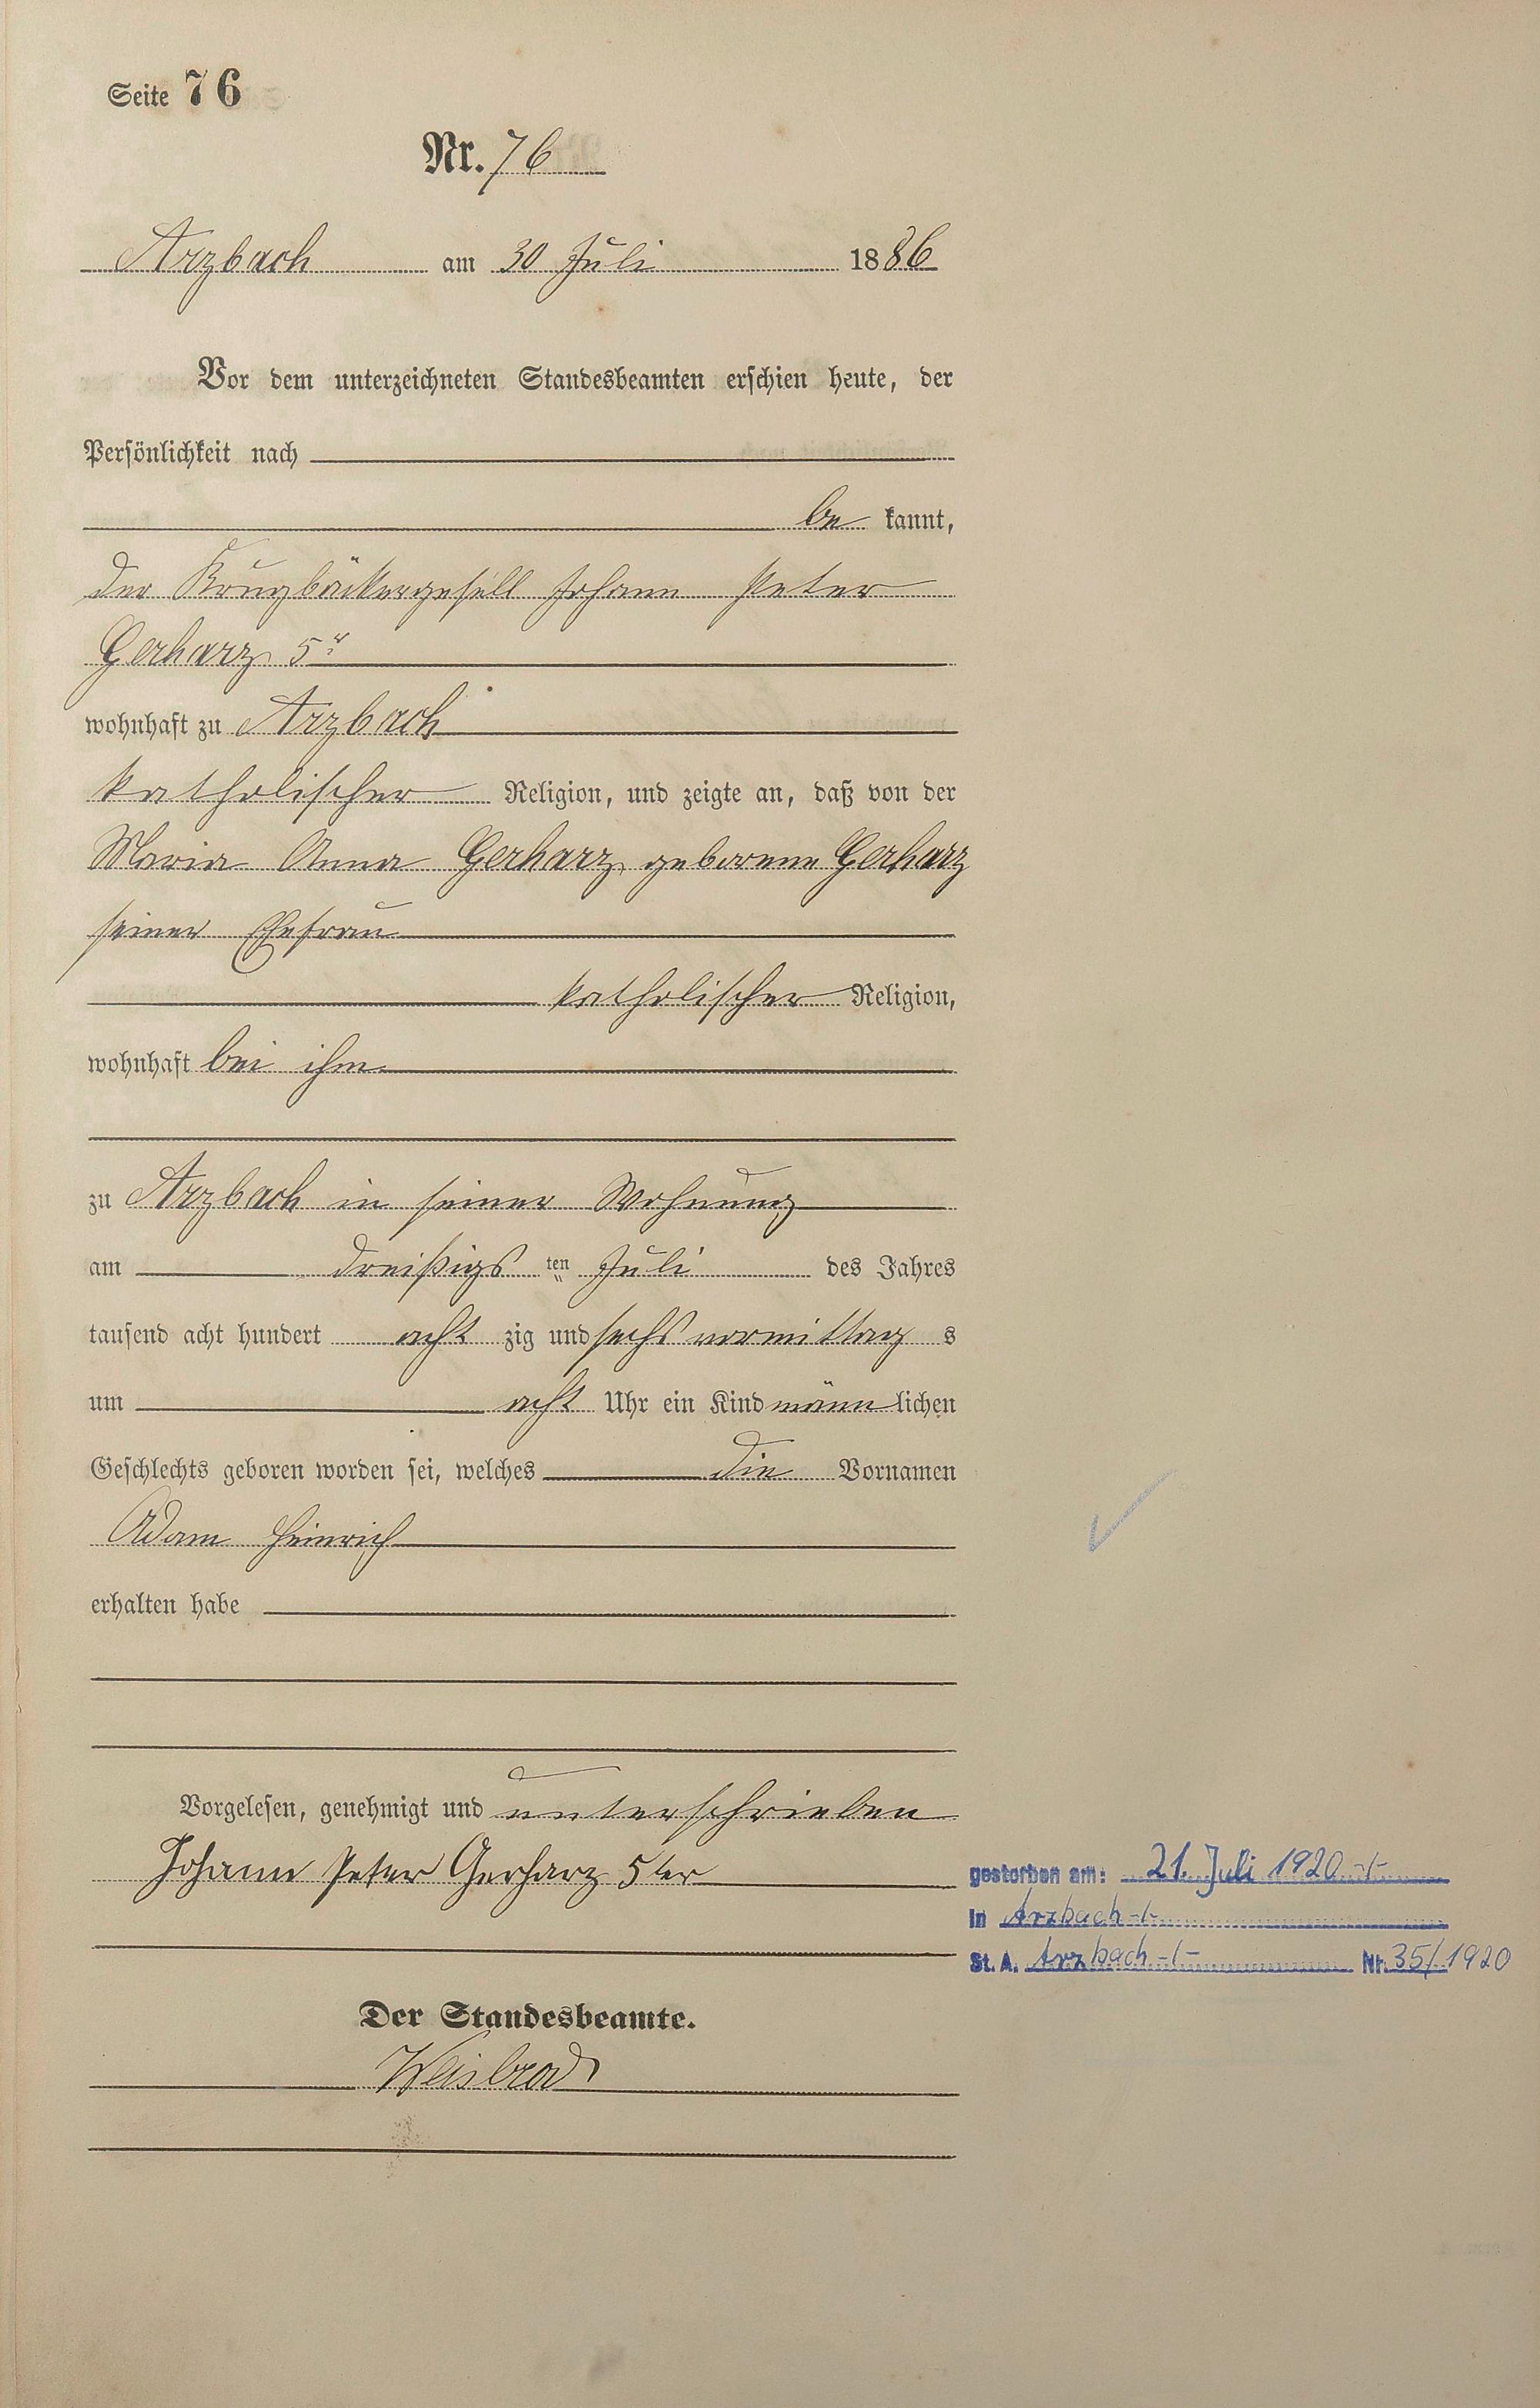 Seite 76
Nr. 76
Arzbach am 30 Juli 1886
Vor dem unterzeichneten Standesbeamten erschien heute, der
Persönlichkeit nach
be kannt,
der Krugbäckergesell Johann Peter
Gerharz 5r
wohnhaft zu Arzbach
katholischer Religion, und zeigte an, daß von der
Maria Anna Gerharz, geborene Gerharz
seiner Ehefrau
katholischer Religion,
wohnhaft bei ihm
zu Arzbach in seiner Wohnung
am dreißigs ten Juli des Jahres
tausend acht hundert acht zig und sechs vormittag s
um acht Uhr ein Kind männ lichen
Geschlechts geboren worden sei, welches die Vornamen
Adam Heinrich
erhalten habe
Vorgelesen, genehmigt und unterschrieben
Johann Peter Gerharz 5ter
gestorben am: 21. Juli 1920 -/-
in Arzbach -/-
St. A. Arzbach -/- Nr. 35/1920
Der Standesbeamte.
Weisbrod